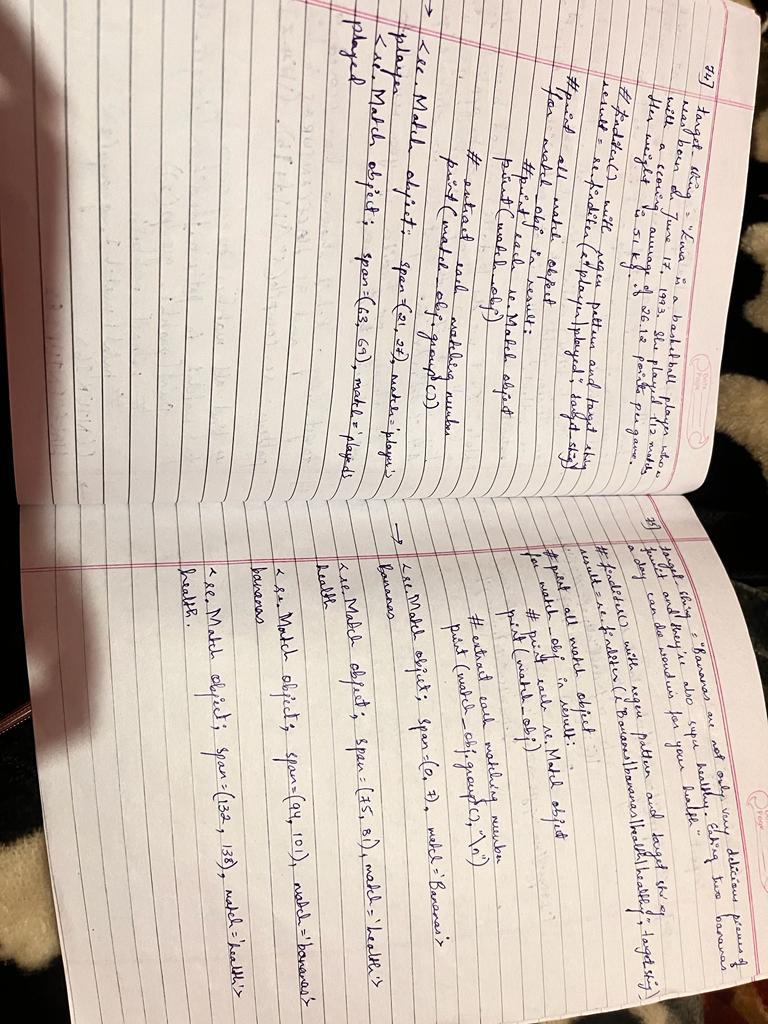 74] target_string = "Emma is a basketball player who
was born on June 17, 1993. She played 112 matches
with a scoring average of 26.12 points per game.
Her weight is 51 kg."
# finditer() with regex pattern and target string
result = re.finditer(r"player|played", target_string)
#print all match object
for match_obj in result:
#print each re.Match object
print(match_obj)
# extract each matching number
print(match_obj.group())
→ <re.Match object; span=(21, 27), match='player'>
player
<re.Match object; span=(63, 69), match='played'>
played
75] target_string = "Bananas are not only very delicious pieces of
fruit and they're also super healthy. Eating two bananas
a day can do wonders for your health"
# finditer() with regex pattern and target string
result = re.finditer(r"Bananas|bananas|health|healthy", target_string)
#print all match object
for match_obj in result:
# print each re.Match object
print(match_obj)
#extract each matching number
print(match_obj.group(), "\n")
→ <re.Match object; span=(0, 7), match='Bananas'>
Bananas
<re.Match object; span=(75, 81), match='health'>
health
<re.Match object; span=(94, 101), match='bananas'>
bananas
<re.Match object; span=(132, 138), match='health'>
health.